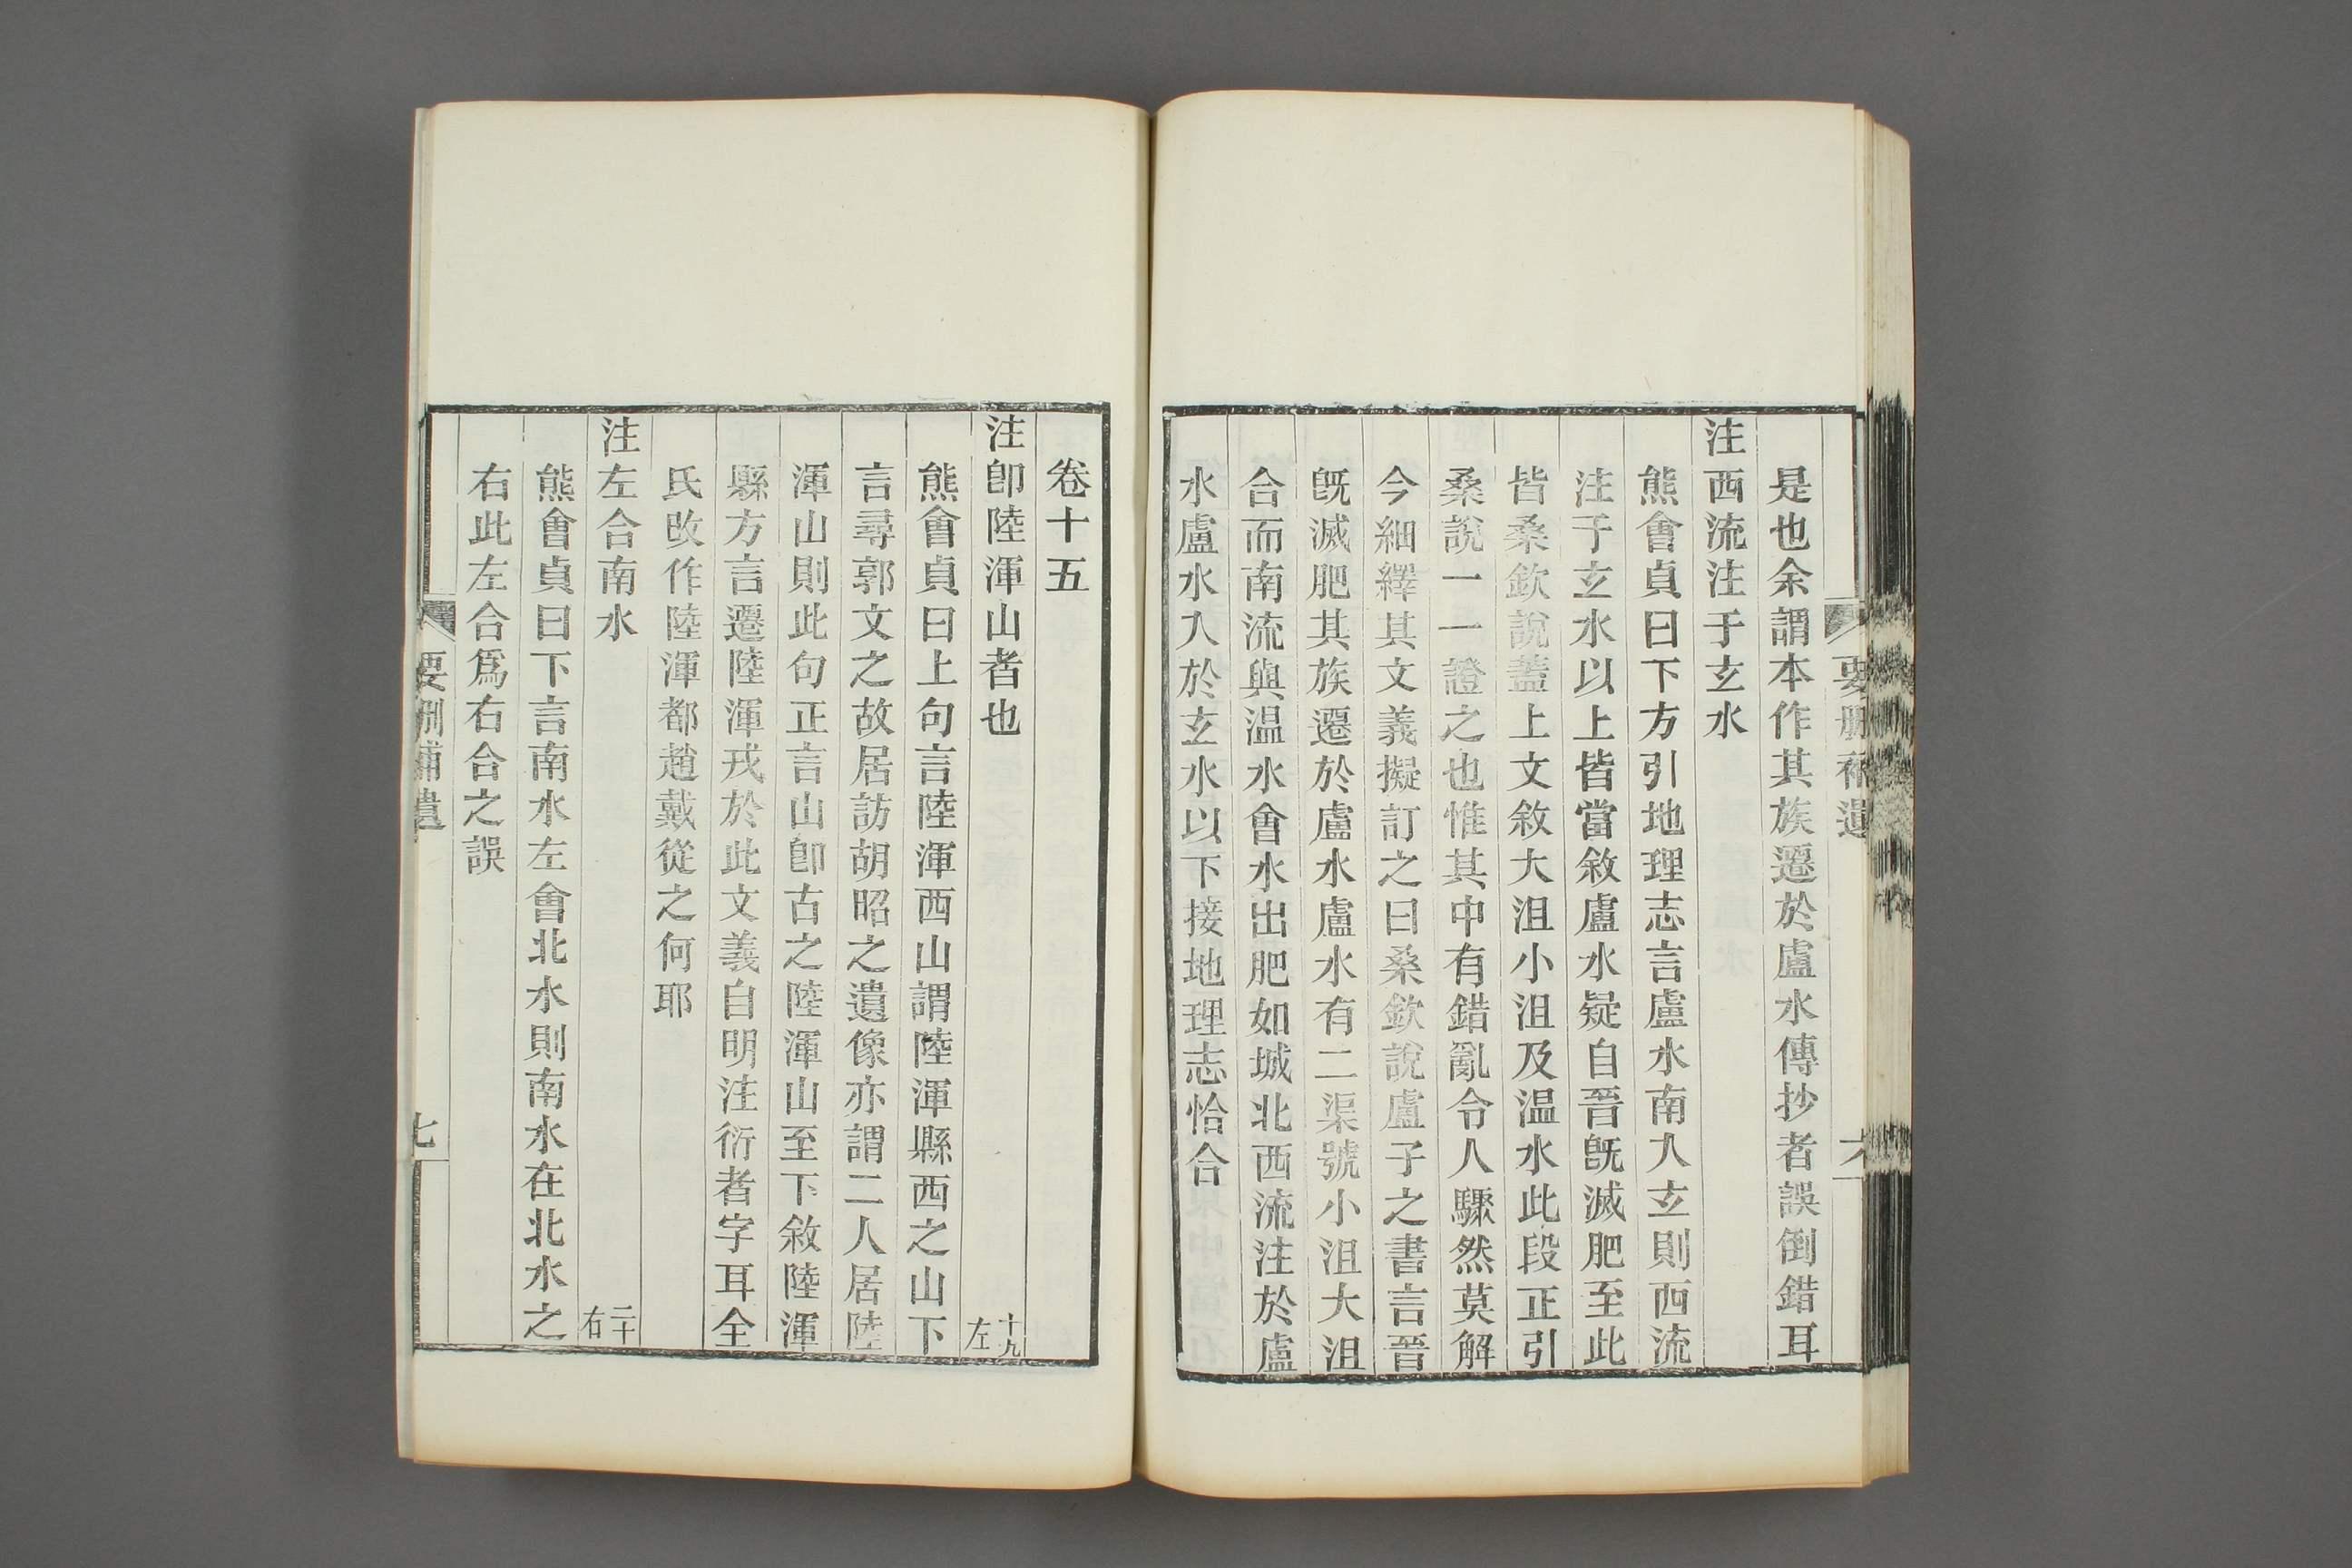 要刪補遺
六
是也余謂本作其族遷於盧水傳抄者誤倒錯耳
注西流注于玄水
熊會貞曰下方引地理志言盧水南入玄則西流
注于玄水以上皆當敘盧水疑自晉旣滅肥至此
皆桑欽說蓋上文敘大沮小沮及温水此段正引
桑說一一證之也惟其中有錯亂令人驟然莫解
今細繹其文義擬訂之曰桑欽說盧子之書言晉
旣滅肥其族遷於盧水盧水有二渠號小沮大沮
合而南流與温水會水出肥如城北西流注於盧
水盧水入於玄水以下接地理志恰合
卷十五
注卽陸渾山者也 十九左
熊會貞曰上句言陸渾西山謂陸渾縣西之山下
言尋郭文之故居訪胡昭之遺像亦謂二人居陸
渾山則此句正言山卽古之陸渾山至下敘陸渾
縣方言遷陸渾戎於此文義自明注衍者字耳全
氏改作陸渾都趙戴從之何耶
注左合南水 二十右
熊會貞曰下言南水左會北水則南水在北水之
右此左合爲右合之誤
要刪補遺
七